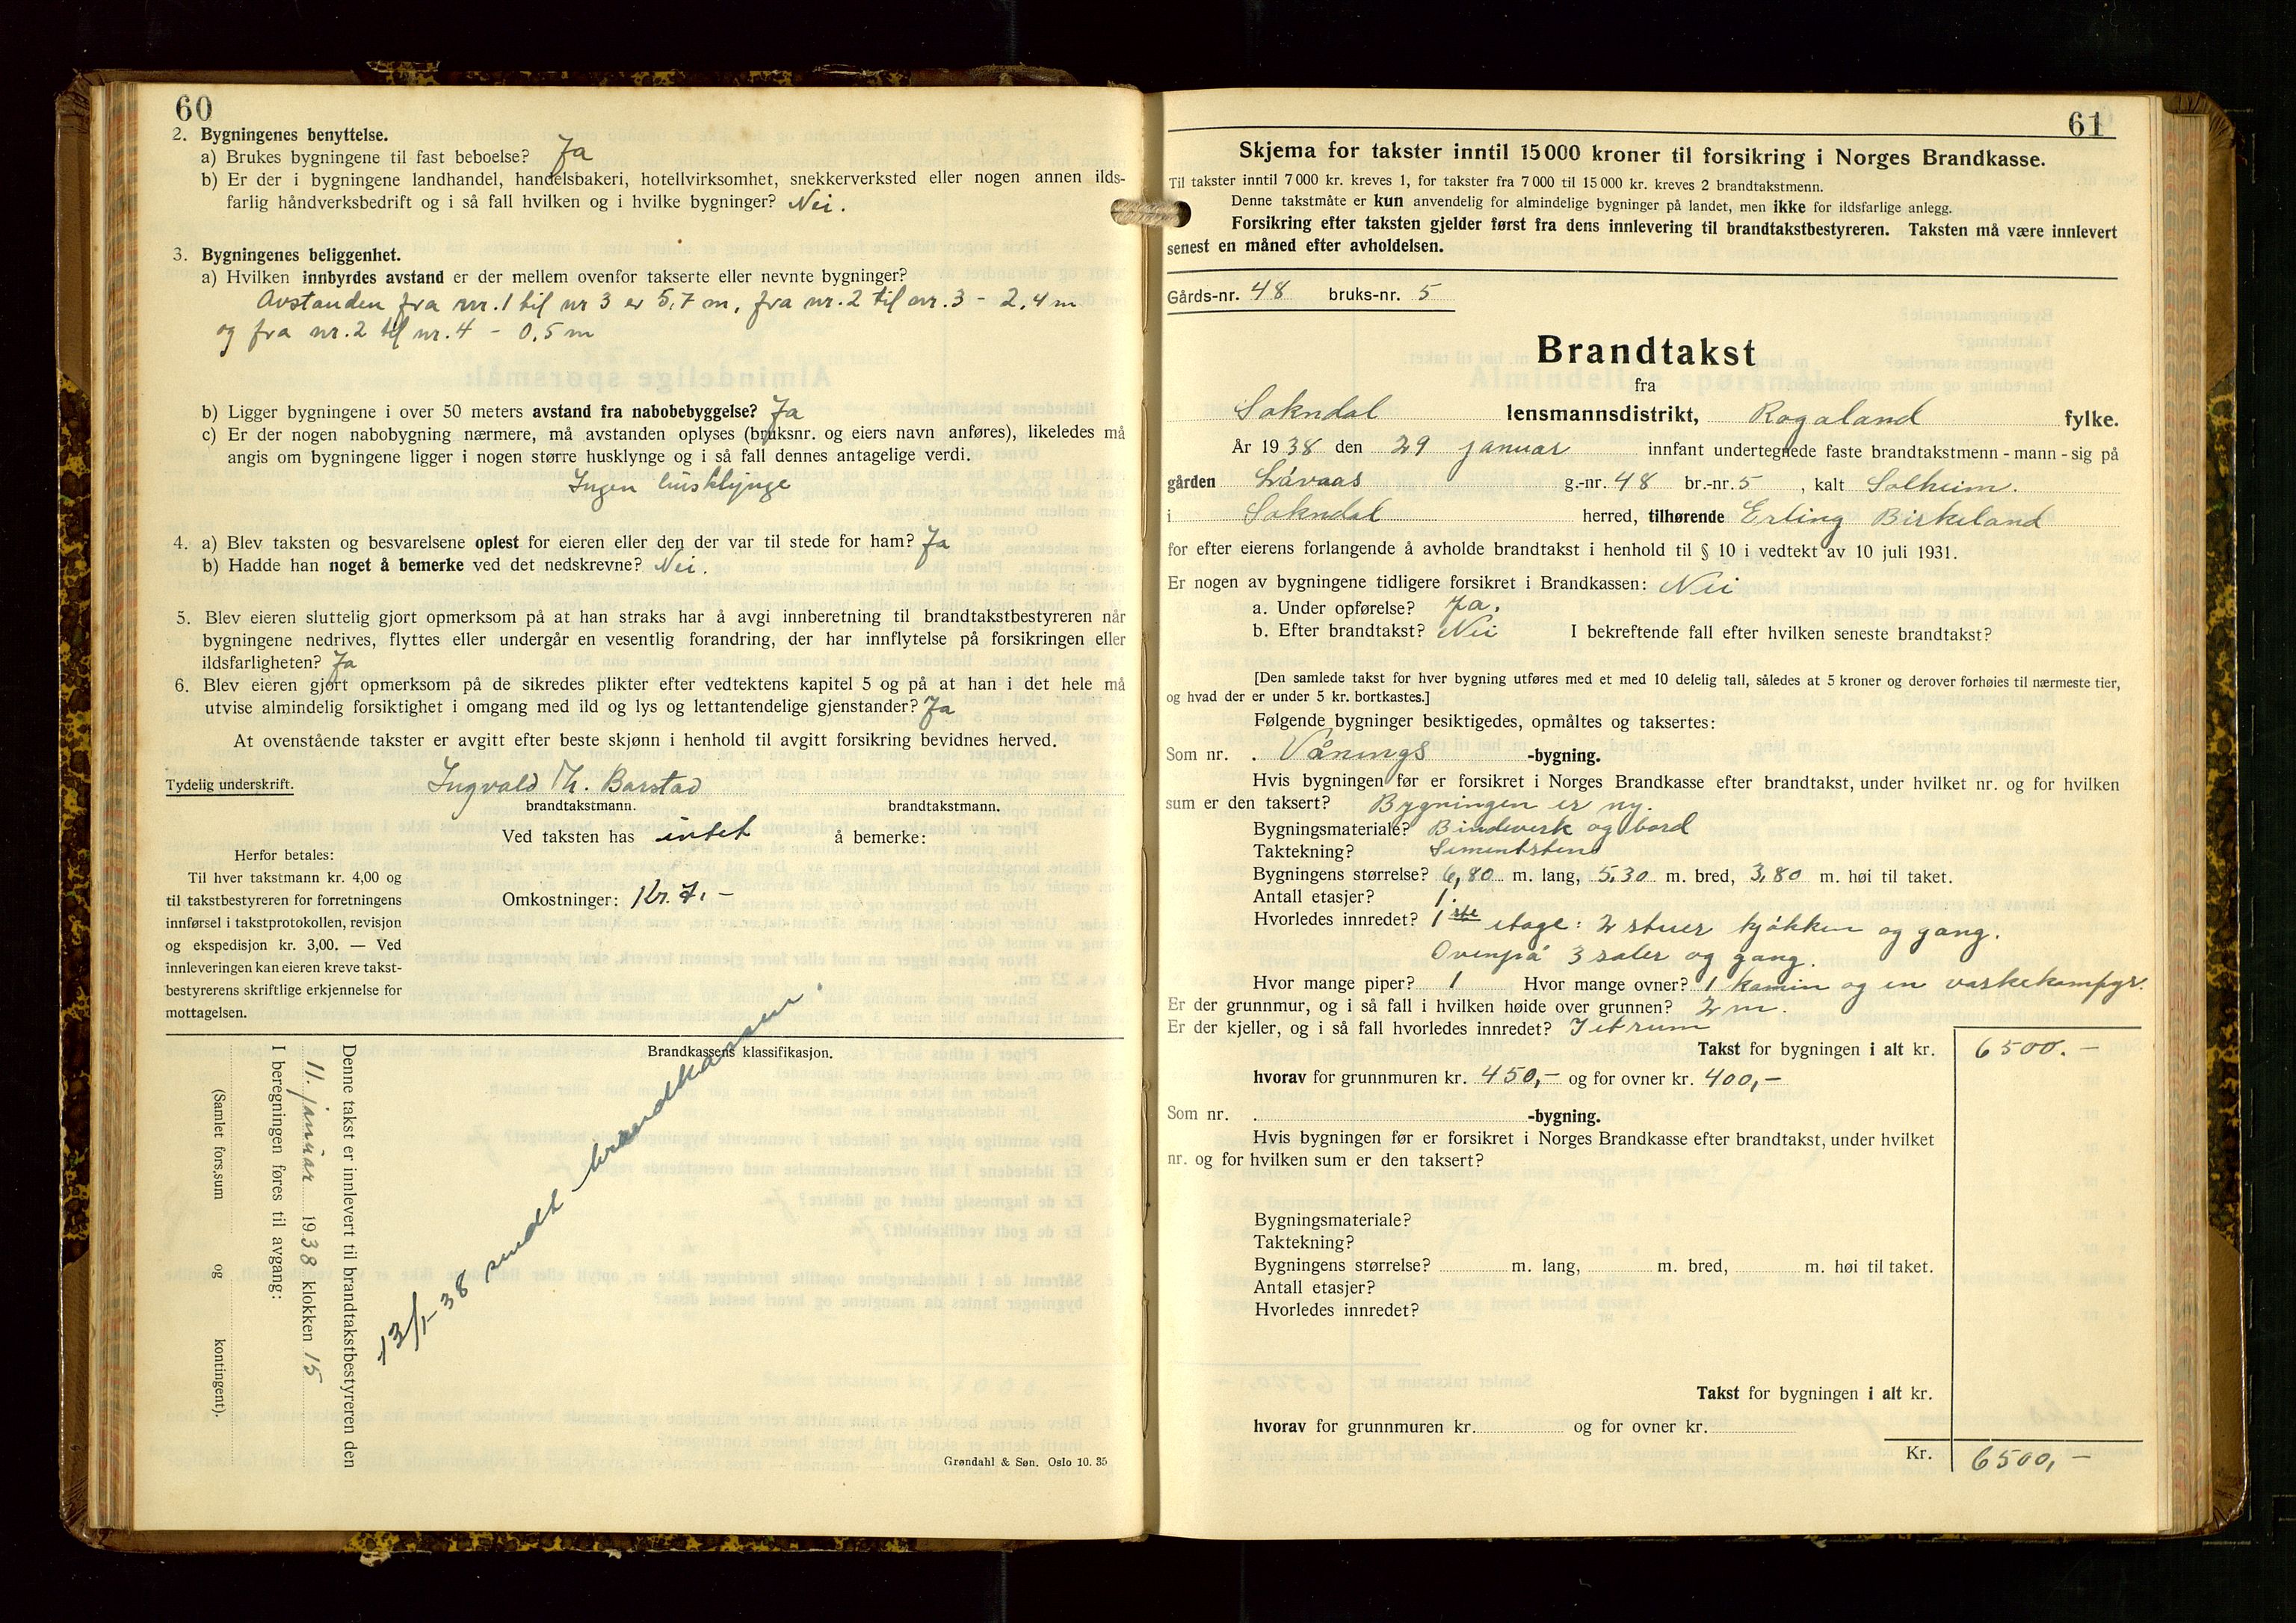 60
2. Bygningenes benyttelse.
a) Brukes bygningene til fast beboelse? Ja
b) Er der i bygningene landhandel, handelsbakeri, hotellvirksomhet, snekkerverksted eller nogen annen ilds-
farlig håndverksbedrift og i så fall hvilken og i hvilke bygninger? Nei.
3. Bygningenes beliggenhet.
a) Hvilken innbyrdes avstand er der mellem ovenfor takserte eller nevnte bygninger?
Avstanden fra nr. 1 til nr 3 er 5,7 m, fra nr. 2 til nr. 3 - 2,4 m
og fra nr. 2 til nr. 4 - 0,5 m
b) Ligger bygningene i over 50 meters avstand fra nabobebyggelse? Ja
c) Er der nogen nabobygning nærmere, må avstanden oplyses (bruksnr. og eiers navn anføres), likeledes må
angis om bygningene ligger i nogen større husklynge og i så fall dennes antagelige verdi.
Ingen husklynge
4. a) Blev taksten og besvarelsene oplest for eieren eller den der var til stede for ham? Ja
b) Hadde han noget å bemerke ved det nedskrevne? Nei.
5. Blev eieren sluttelig gjort opmerksom på at han straks har å avgi innberetning til brandtakstbestyreren når
bygningene nedrives, flyttes eller undergår en vesentlig forandring, der har innflytelse på forsikringen eller
ildsfarligheten? Ja
6. Blev eieren gjort opmerksom på de sikredes plikter efter vedtektens kapitel 5 og på at han i det hele må
utvise almindelig forsiktighet i omgang med ild og lys og lettantendelige gjenstander? Ja
At ovenstående takster er avgitt efter beste skjønn i henhold til avgitt forsikring bevidnes herved.
Tydelig underskrift. Ingvald Th. Barstad
brandtakstmann. brandtakstmann.
Ved taksten has intet å bemerke:
Herfor betales:
Til hver takstmann kr. 4,00 og
til takstbestyreren for forretningens
innførsel i takstprotokollen, revisjon
og ekspedisjon kr. 3,00. — Ved
innleveringen kan eieren kreve takst-
bestyrerens skriftlige erkjennelse for
mottagelsen.
Omkostninger: Kr. 7.-
Brandkassens klassifikasjon.
Denne takst er innlevert til brandtakstbestyreren den
11. januar 1938 klokken 15
I beregningen føres til avgang:
(Samlet fors.sum og kontingent).
13/1-38 sendt brandkassen.
Grøndahl & Søn. Oslo 10. 35
61
Skjema for takster inntil 15 000 kroner til forsikring i Norges Brandkasse.
Til takster inntil 7 000 kr. kreves 1, for takster fra 7 000 til 15 000 kr. kreves 2 brandtakstmenn.
Denne takstmåte er kun anvendelig for almindelige bygninger på landet, men ikke for ildsfarlige anlegg.
Forsikring efter taksten gjelder først fra dens innlevering til brandtakstbestyreren. Taksten må være innlevert
senest en måned efter avholdelsen.
Gårds-nr. 48 bruks-nr. 5
Brandtakst
fra
Sokndal lensmannsdistrikt, Rogaland fylke.
År 1938 den 29 januar innfant undertegnede faste brandtakstmenn - mann - sig på
gården Låvaas g.-nr. 48 br.-nr. 5, kalt Solheim.
i Sokndal herred, tilhørende Erling Birkeland
for efter eierens forlangende å avholde brandtakst i henhold til § 10 i vedtekt av 10 juli 1931.
Er nogen av bygningene tidligere forsikret i Brandkassen: Nei
a. Under opførelse? Ja.
b. Efter brandtakst? Nei I bekreftende fall efter hvilken seneste brandtakst?
[Den samlede takst for hver bygning utføres med et med 10 delelig tall, således at 5 kroner og derover forhøies til nærmeste tier,
og hvad der er under 5 kr. bortkastes.]
Følgende bygninger besiktigedes, opmåltes og taksertes:
Som nr. . Vånings -bygning.
Hvis bygningen før er forsikret i Norges Brandkasse efter brandtakst, under hvilket nr. og for hvilken
sum er den taksert? Bygningen er ny.
Bygningsmateriale? Bindeverk og bord
Taktekning? Sementsten
Bygningens størrelse? 6,80 m. lang, 5,30 m. bred, 3,80 m. høi til taket.
Antall etasjer? 1.
Hvorledes innredet? 1ste etage: 2 stuer kjøkken og gang.
Ovenpå 3 saler og gang.
Hvor mange piper? 1 Hvor mange ovner? 1 kamin og en vaskekompyr.
Er der grunnmur, og i så fall i hvilken høide over grunnen? 2 m.
Er der kjeller, og i så fall hvorledes innredet? I et rum
Takst for bygningen i alt kr. 6500.-
hvorav for grunnmuren kr. 450,- og for ovner kr. 400,-
Som nr. . -bygning.
Hvis bygningen før er forsikret i Norges Brandkasse efter brandtakst, under hvilket
nr. og for hvilken sum er den taksert?
Bygningsmateriale?
Taktekning?
Bygningens størrelse? m. lang, m. bred, m. høi til taket.
Antall etasjer?
Hvorledes innredet?
Takst for bygningen i alt kr.
hvorav for grunnmuren kr. og for ovner kr.
Kr. 6500,-